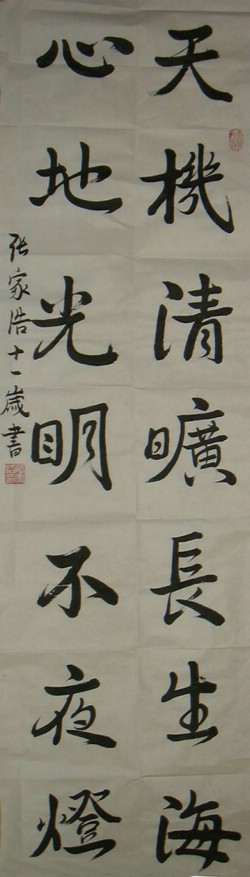 天機清曠長生海
心地光明不夜燈
张家浩十一歲書